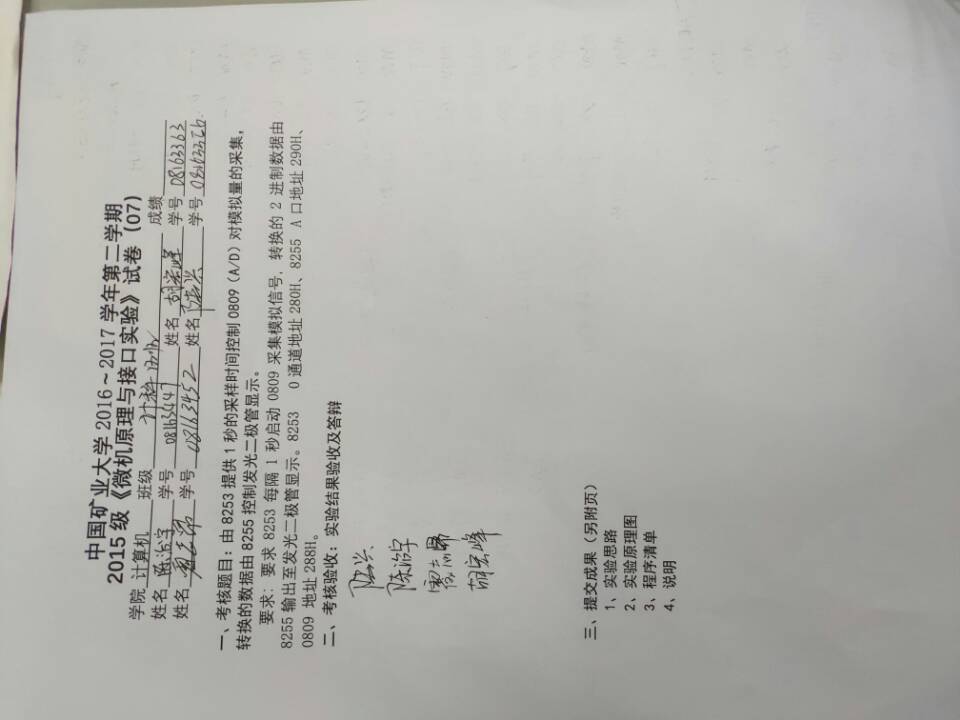 中国矿业大学2016~2017学年第二学期
2015级《微机原理与接口实验》试卷（07）
学院 计算机 班级 成绩
姓名 学号 08163447 姓名 胡宏峰 学号 08163363
姓名 学号 08163452 姓名 学号
一、考核题目：由8253提供1秒的采样时间控制0809（A/D）对模拟量的采集，
转换的数据由8255控制发光二极管显示。
要求：要求8253每隔1秒启动0809采集模拟信号，转换的2进制数据由
8255输出至发光二极管显示。8253 0通道地址280H、8255 A口地址290H、
0809 地址288H。
二、考核验收：实验结果验收及答辩
胡宏峰
三、提交成果（另附页）
1、实验思路
2、实验原理图
3、程序清单
4、说明